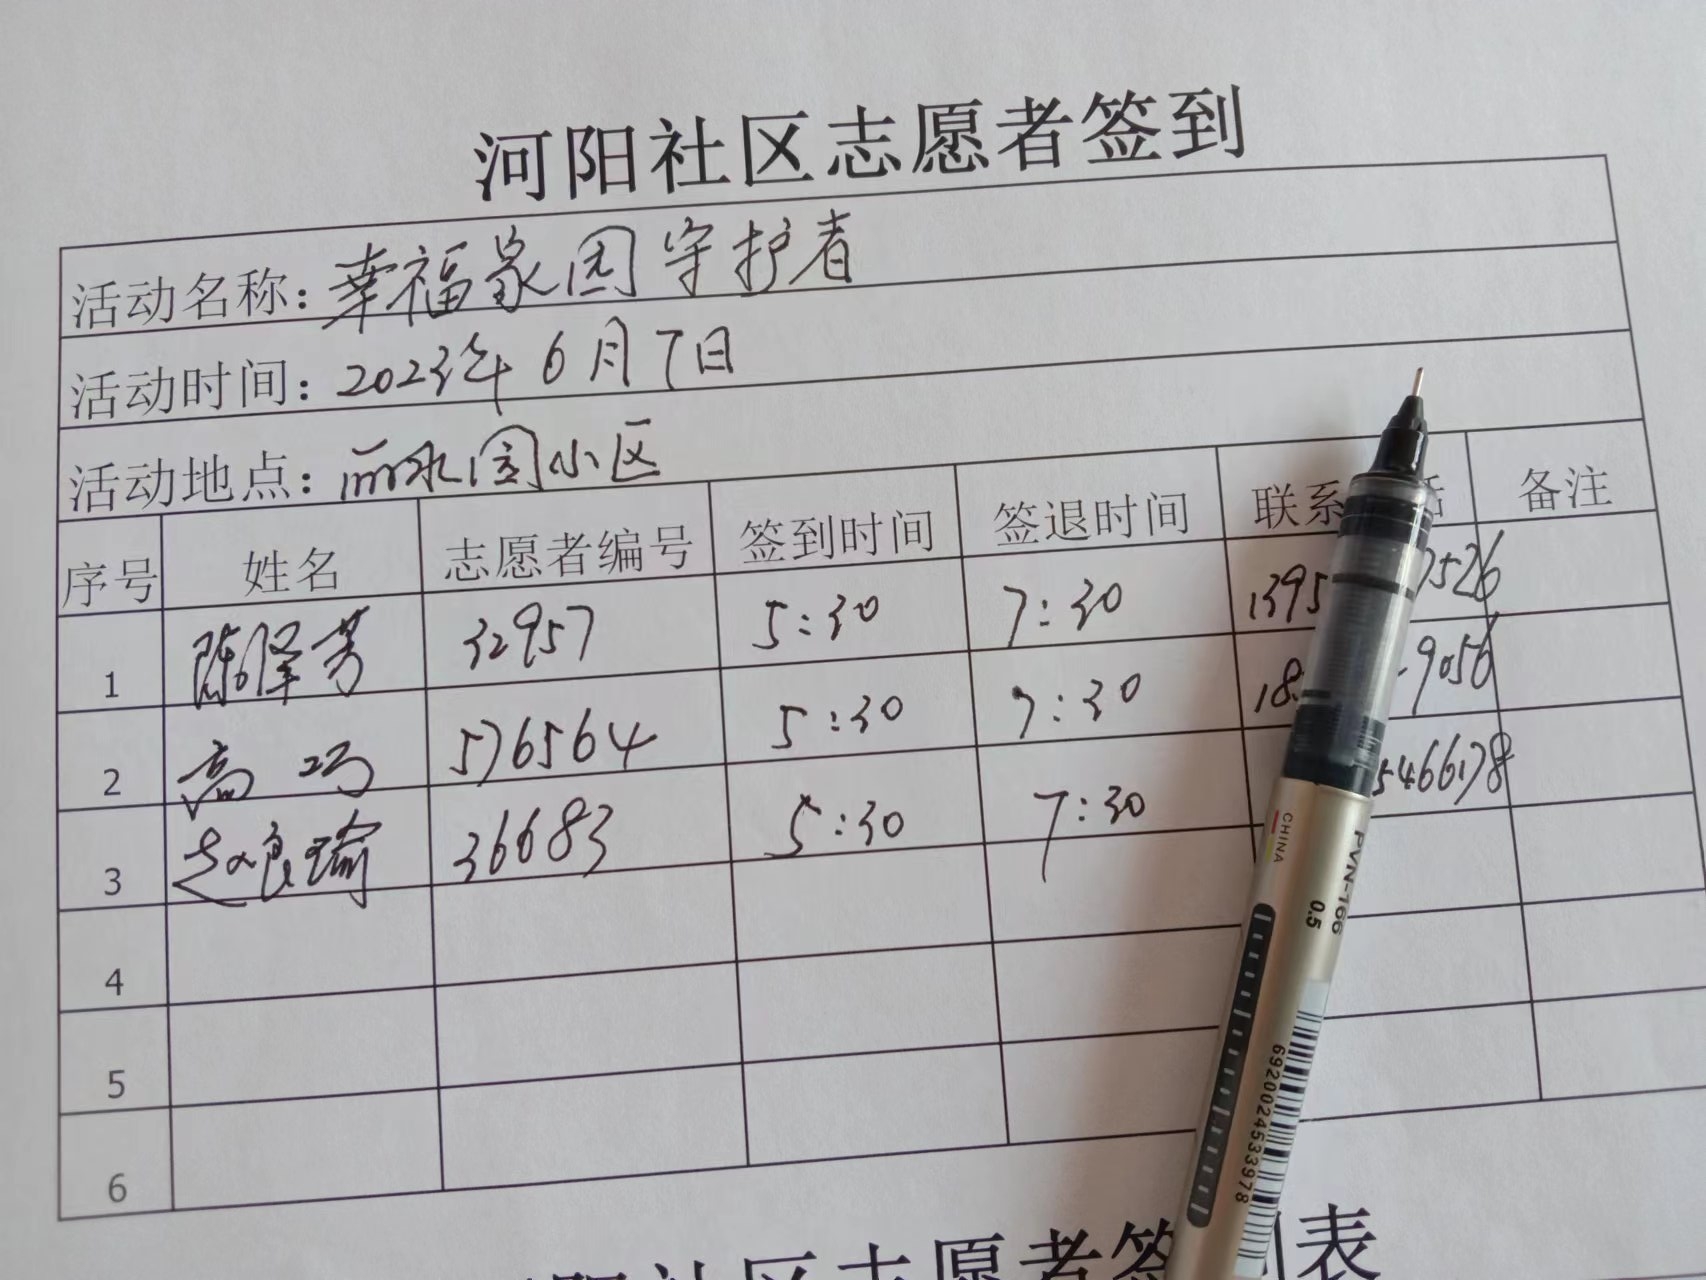 河阳社区志愿者签到
活动名称：幸福家园守护者
活动时间：2023年6月7日
活动地点：丽水园小区
序号 姓名 志愿者编号 签到时间 签退时间 联系 话 备注
1 陈泽芳 32957 5:30 7:30 1395 7526
2 高巧 576564 5:30 7:30 18 9056
3 赵良瑜 36683 5:30 7:30 5466178
4
5
6
CHINA
PVN-166
0.5
6920024533978
阳社区志愿者签 到表